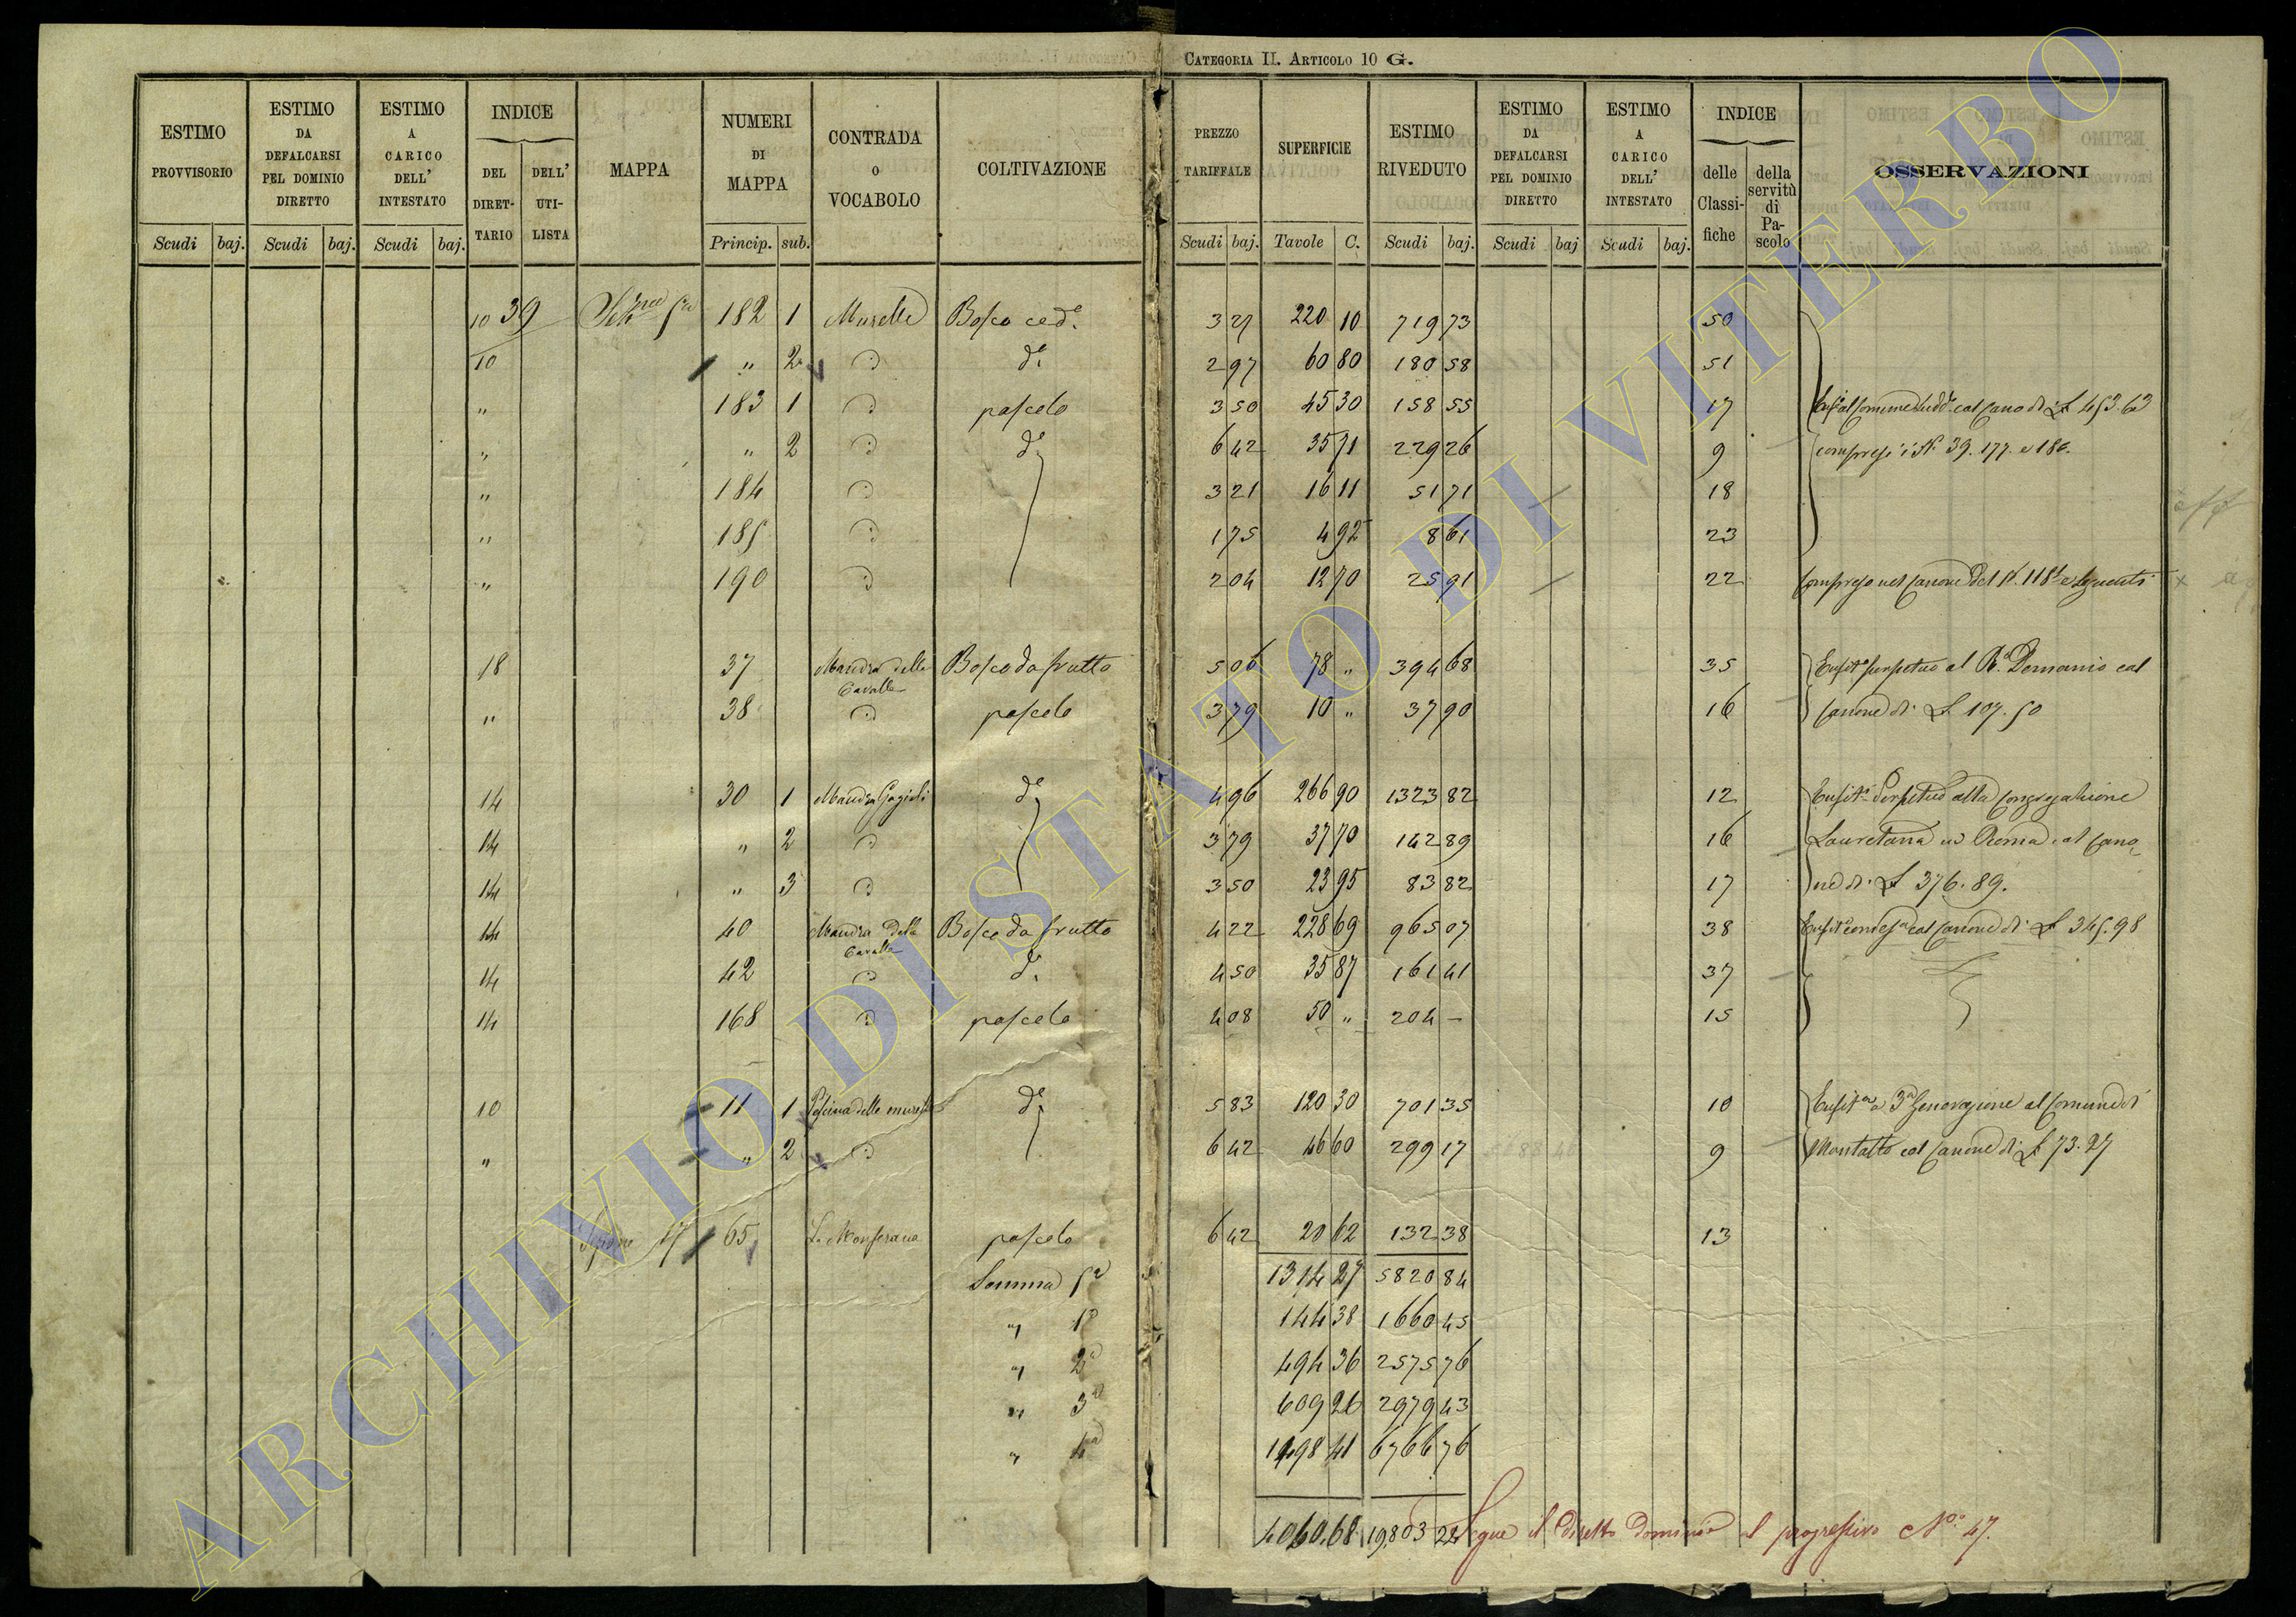 CATEGORIA II. ARTICOLO 10 G.
ESTIMO PROVVISORIO | ESTIMO DA DEFALCARSI PEL DOMINIO DIRETTO | ESTIMO A CARICO DELL' INTESTATO | INDICE DEL DIRETTARIO | DELL' UTILISTA | MAPPA | NUMERI DI MAPPA | CONTRADA O VOCABOLO | COLTIVAZIONE | PREZZO TARIFFALE | SUPERFICIE | ESTIMO RIVEDUTO | ESTIMO DA DEFALCARSI PEL DOMINIO DIRETTO | ESTIMO A CARICO DELL' INTESTATO | INDICE delle Classifiche | della servitù di Pascolo | OSSERVAZIONI
Scudi baj. Scudi baj. Scudi baj. Princip. sub. Scudi baj. Tavole C. Scudi baj. Scudi baj Scudi baj.
10 39 182 1 Murelle Bosco ced.e 3 27 220 10 719 73 50
10 " 2 d.o 2 97 60 80 180 58 51
" 183 1 pascolo 3 50 45 30 158 55 17 col Cano di £ 453.63
" " 2 d.o 6 42 35 71 229 26 9 compresi i N.i 39. 177. e 186.
" 184 3 21 16 11 51 71 18
" 185 1 75 4 92 8 61 23
" 190 2 04 12 70 25 91 22 Compreso nel Canone del N. 118 e seguenti
18 37 Mandra delle Cavalle Bosco da frutto 5 06 78 " 394 68 35 Enfit.a perpetuo al R.o Demanio col
" 38 pascolo 3 79 10 " 37 90 16 Canone di £ 107.50
14 30 1 Mandra d.o 4 96 266 90 1323 82 12 Enfit.a Perpetuo alla Congregazione
14 " 2 3 79 37 70 142 89 16 Lauretana in Roma, al Cano-
14 " 3 3 50 23 95 83 82 17 ne di £ 376.89.
14 40 Mandra delle Cavalle Bosco da frutto 4 22 228 69 965 07 38 col Canone di £ 345.98
14 42 d.o 4 50 35 87 161 41 37
14 168 pascolo 4 08 50 " 204 — 15
10 11 1 Piscina delle murelle d.o 5 83 120 30 701 35 10 Enfit.a a 3a Generazione al Comune di
" " 2 6 42 46 60 299 17 9 Montalto col Canone di £ 73.27
65 pascolo 6 42 20 62 132 38 13
Somma 5a 1314 27 5820 84
" 1a 144 38 1660 45
" 2a 494 36 2575 76
" 3a 609 26 2979 43
" 4a 1498 41 6766 76
4060.68 19,803 22 Segue il diretto dominio al progressivo No. 47.
ARCHIVIO DI STATO DI VITERBO